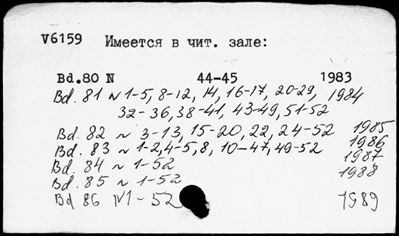 V6159 Имеется в чит. зале:
Bd.80 N 44-45 1983
Bd. 81 N 1-5, 8-12, 14, 16-17, 20-29, 1984
32-36, 38-41, 43-49, 51-52
Bd. 82 ~ 3-13, 15-20, 22, 24-52 1985
Bd. 83 ~ 1-2, 4-5, 8, 10-47, 49-52 1986
Bd. 84 ~ 1-52 1987
Bd. 85 ~ 1-52 1988
Bd 86 N1-52 1989